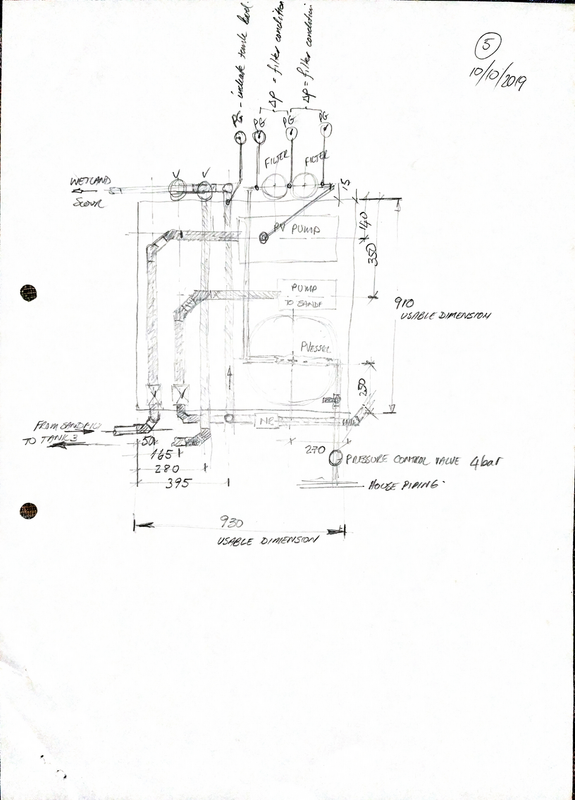 5
10/10/2019
PG - indicate tank level.
ΔP = filter condition
ΔP = filter condition
PG
PG
PG
FILTER
FILTER
WETLAND
SCOUR
15
140
350
PV PUMP
PUMP
TO SANDF
910
USABLE DIMENSION
PVESSEL
250
FROM SAND
TO TANK 3
50
165
280
395
270
PRESSURE CONTROL VALVE 4bar
HOUSE PIPING.
930
USABLE DIMENSION